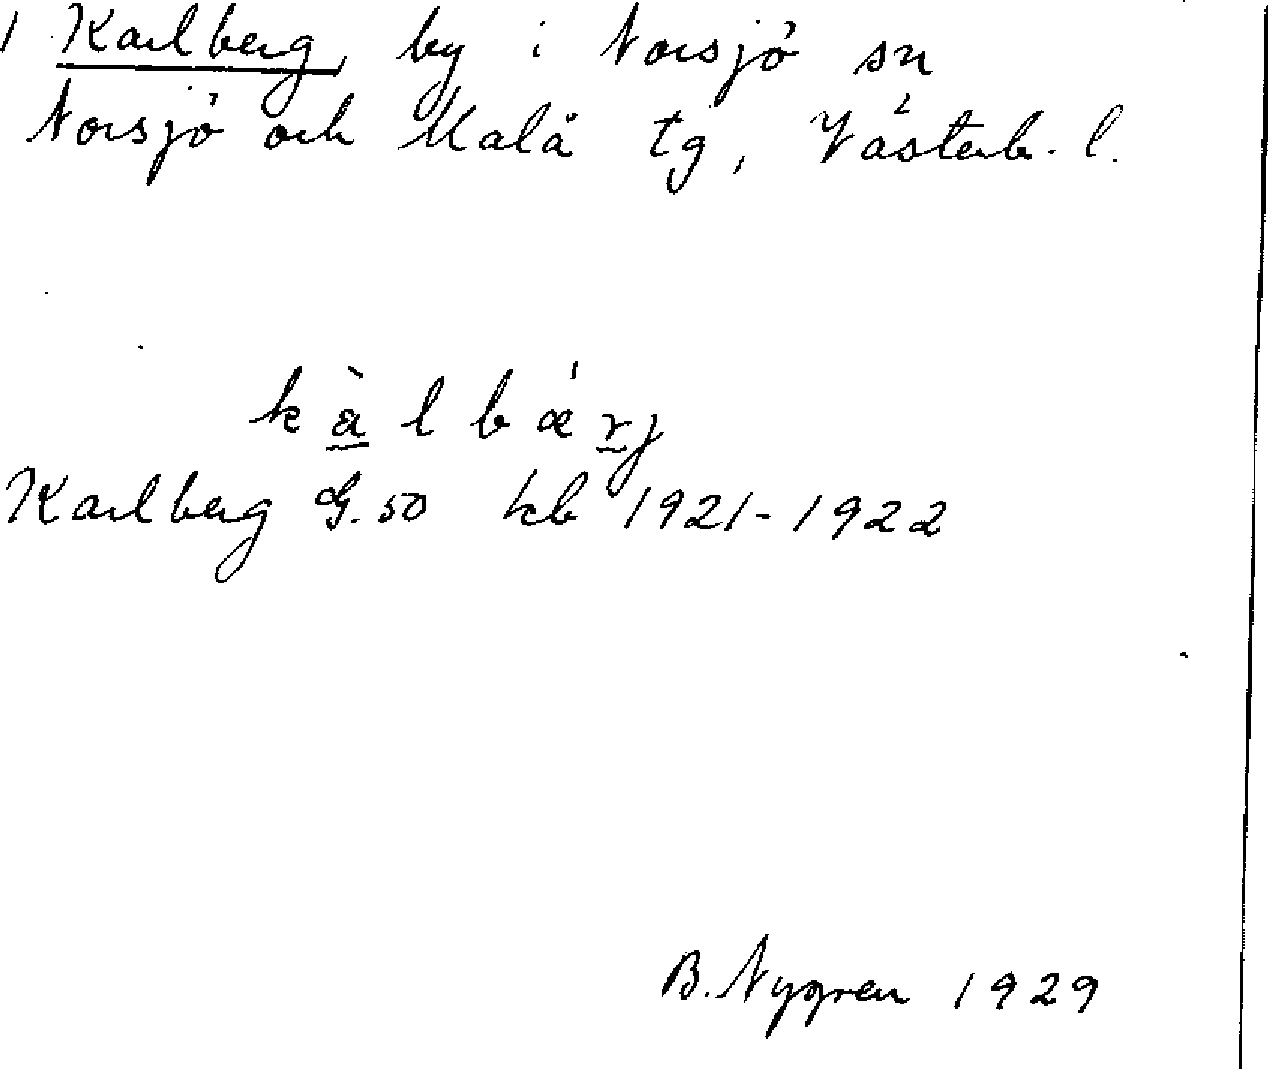 1 Karlberg, by i Norsjö sn
Norsjö och Malå tg, Västerb. l.
kàlbǽrj
Karlberg G. 50 kb 1921-1922
B. Nygren 1929